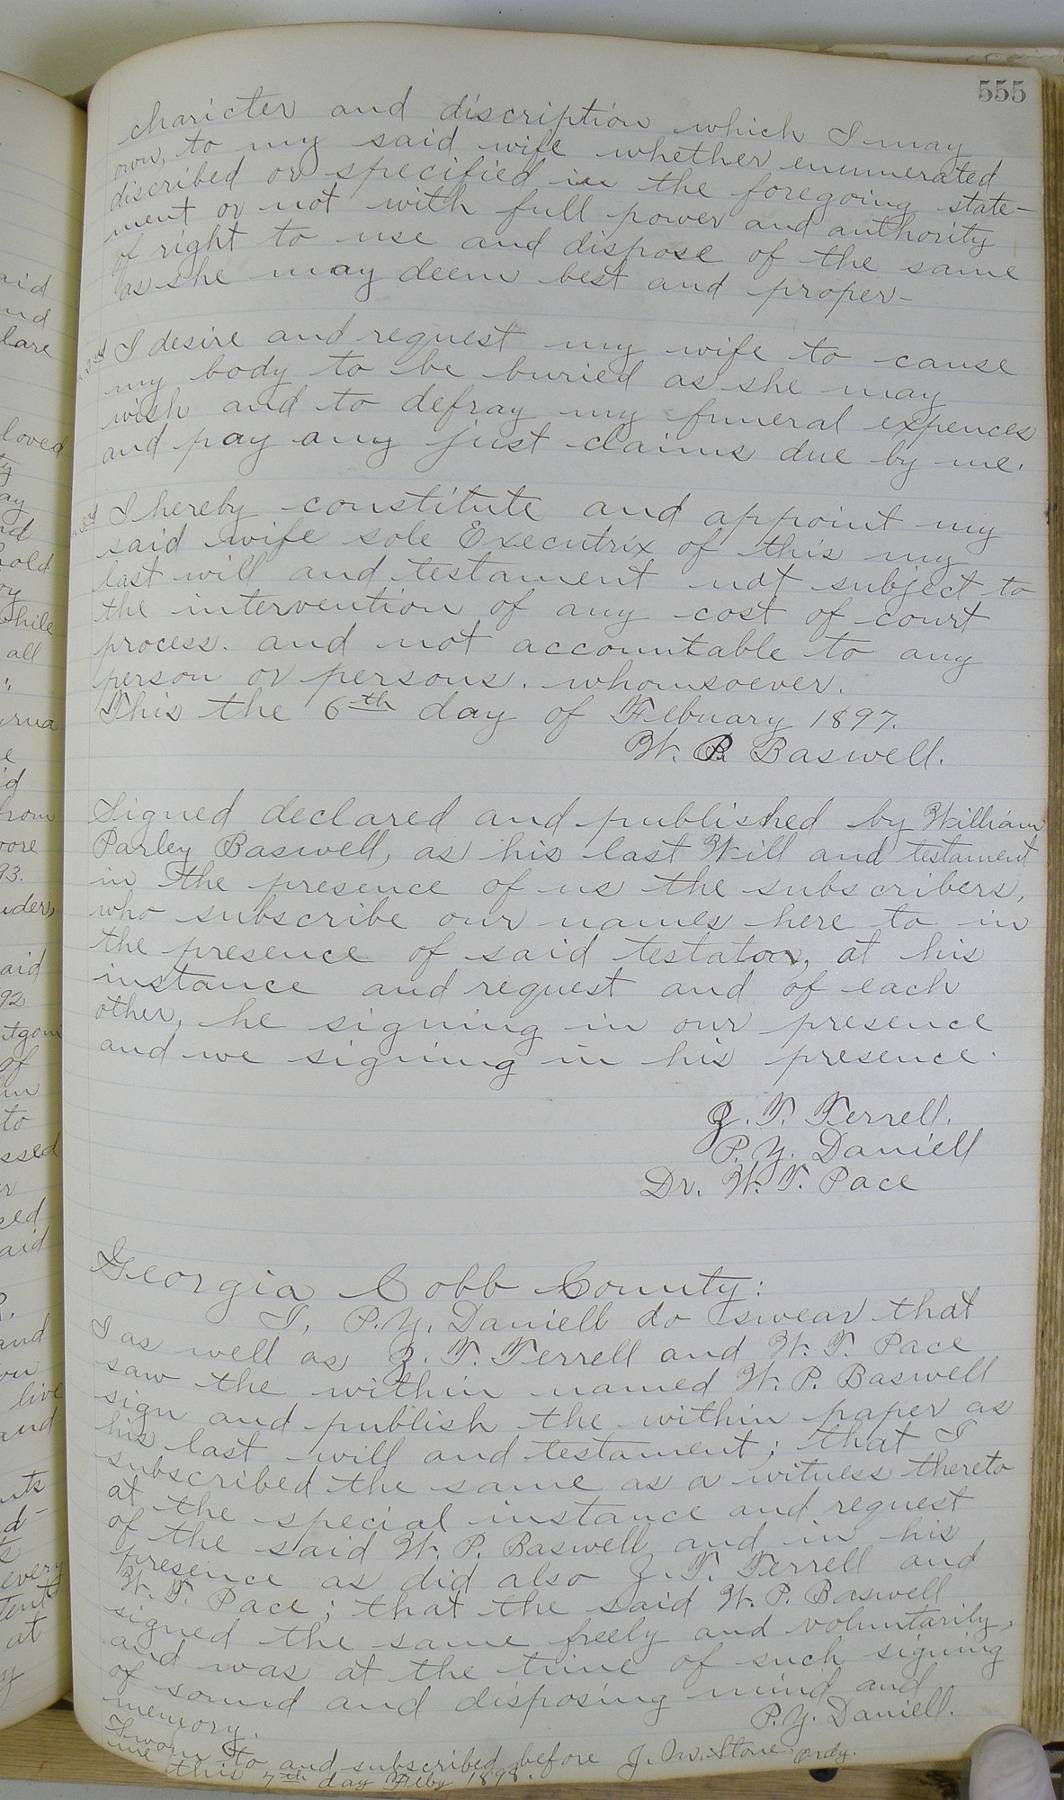 555
charicter and discription which I may
own, to my said wife whether enumerated
discribed or specified in the foregoing state-
ment or not with full power and authority
of right to use and dispose of the same
as she may deem best and proper-
I desire and request my wife to cause
my body to be buried as she may
wish and to defray my funeral expences
and pay any just claims due by me.
I hereby constitute and appoint my
said wife sole Executrix of this my
last will and testament not subject to
the intervention of any cost of court
process. and not accountable to any
person or persons. whomsoever.
This the 6th day of Febuary 1897.
W. P. Baswell.
Signed declared and published by William
Parley Baswell, as his last Will and testament
in the presence of us the subscribers,
who subscribe our names here to in
the presence of said testator, at his
instance and request and of each
other, he signing in our presence
and we signing in his presence.
J. T. Terrell.
P. Y. Daniell
Dr. W. T. Pace
Georgia Cobb County:
I, P. Y. Daniell do swear that
I as well as J. T. Terrell and W. T. Pace
saw the within named W. P. Baswell
sign and publish the within paper as
his last will and testament; that I
subscribed the same as a witness thereto
at the special instance and request
of the said W. P. Baswell and in his
presence as did also J. T. Terrell and
W. T. Pace; that the said W. P. Baswell
signed the same freely and voluntarily,
and was at the time of such signing
of sound and disposing mind and
memory.
P. Y. Daniell.
Sworn to and subscribed before J. W. Stone Ordy.
me this 7th day Feby 1898.